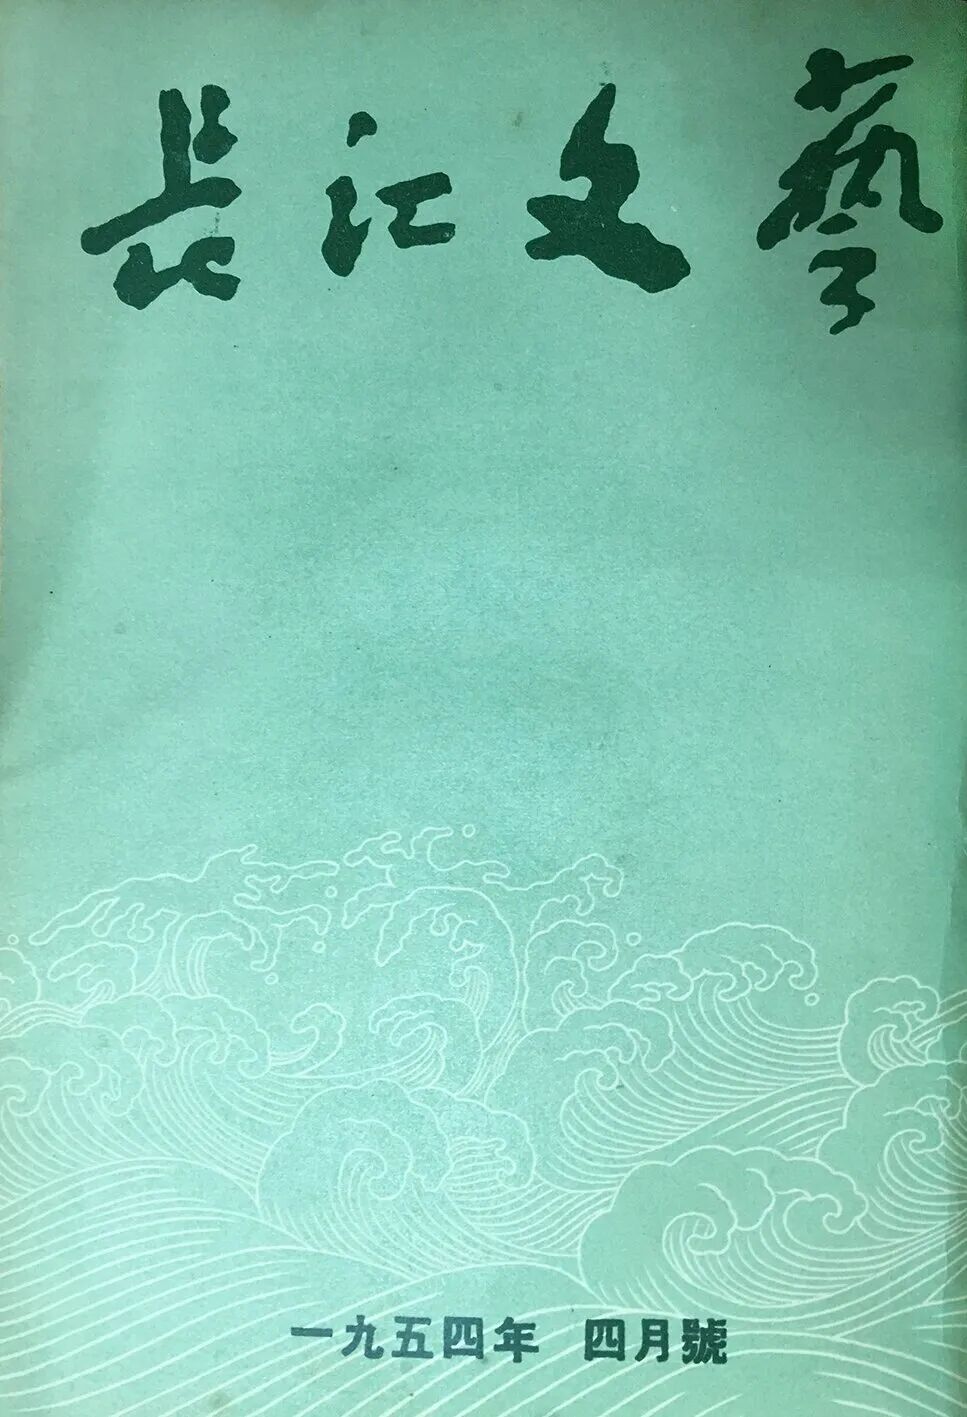 長江文藝
一九五四年 四月號